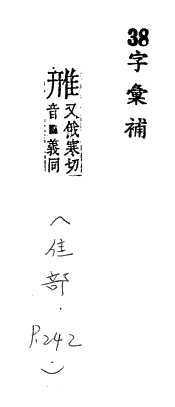 38字彙補
雃
又俄寒切
音 義同
（隹部．
P.242）